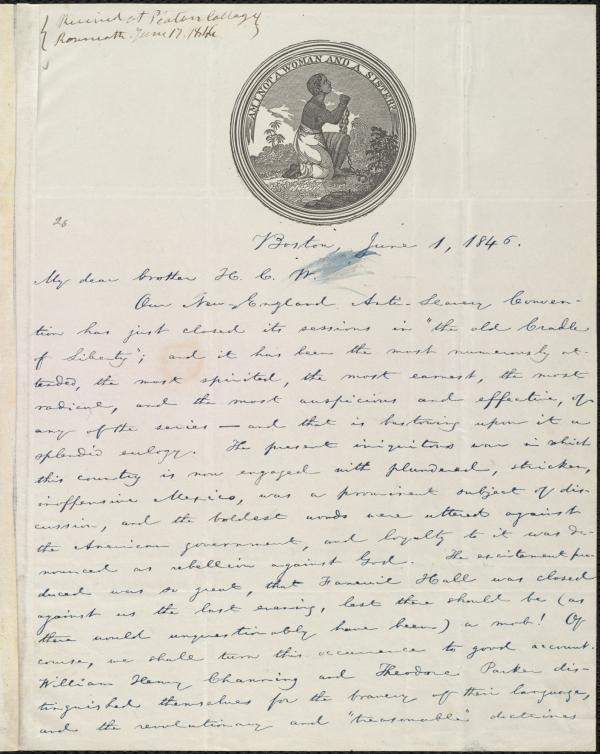 Received at Peaton Cottage
Rosneath. June 17. 1846
AM I NOT A WOMAN AND A SISTER?
26
Boston, June 1, 1846.
My dear brother H. C. W.
Our New-England Anti-Slavery Conven-
tion has just closed its sessions in "the old Cradle
of Liberty"; and it has been the most numerously at-
tended, the most spirited, the most earnest, the most
radical, and the most auspicious and effective, of
any of the series — and that is bestowing upon it a
splendid eulogy. The present iniquitous war in which
this country is now engaged with plundered, stricken,
inoffensive Mexico, was a prominent subject of dis-
cussion, and the boldest words were uttered against
the American government, and loyalty to it was de-
nounced as rebellion against God. The excitement pro-
duced was so great, that Faneuil Hall was closed
against us the last evening, lest there should be (as
there would unquestionably have been) a mob! Of
course, we shall turn this occurrence to good account.
William Henry Channing and Theodore Parker dis-
tinguished themselves for the bravery of their language,
and the revolutionary and "treasonable" doctrines